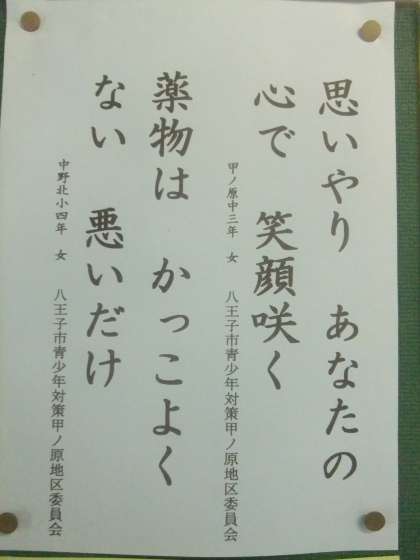 思いやり　あなたの
心で　笑顔咲く
甲ノ原中三年　女　八王子市青少年対策甲ノ原地区委員会
薬物は　かっこよく
ない　悪いだけ
中野北小四年　女　八王子市青少年対策甲ノ原地区委員会